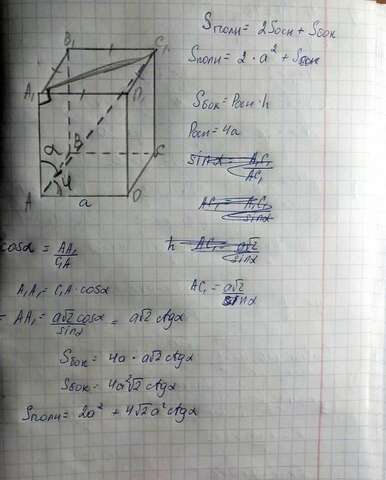 Sполн = 2Sосн + Sбок
Sполн = 2 · a² + Sбок
Sбок = Pосн · h
Pосн = 4a
sinα = A₁C₁/AC₁
AC₁ = A₁C₁/sinα
h = AC₁ = a√2/sinα
AC₁ = a√2/sinα
B₁
C₁
A₁
D₁
α
B
C
φ
A
a
D
cosα = AA₁/C₁A
A₁A₁ = C₁A · cosα
= AA₁ = a√2 cosα/sinα = a√2 ctgα
Sбок = 4a · a√2 ctgα
Sбок = 4a²√2 ctgα
Sполн = 2a² + 4√2 a² ctgα